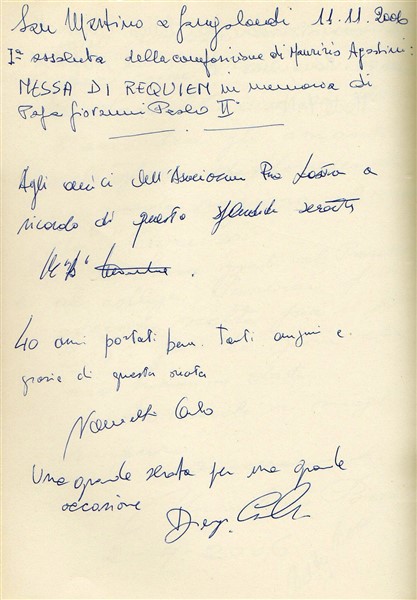 San Martino a Gangalandi 11.11.2006
Iª assoluta della composizione di Maurizio Agostini:
MESSA DI REQUIEM in memoria di
Papa Giovanni Paolo II
Agli amici dell'Associazione Pro Lastra a
ricordo di questa splendida serata
40 anni portati bene. Tanti auguri e
grazie di questa serata
Carlo
Una grande serata per una grande
occasione